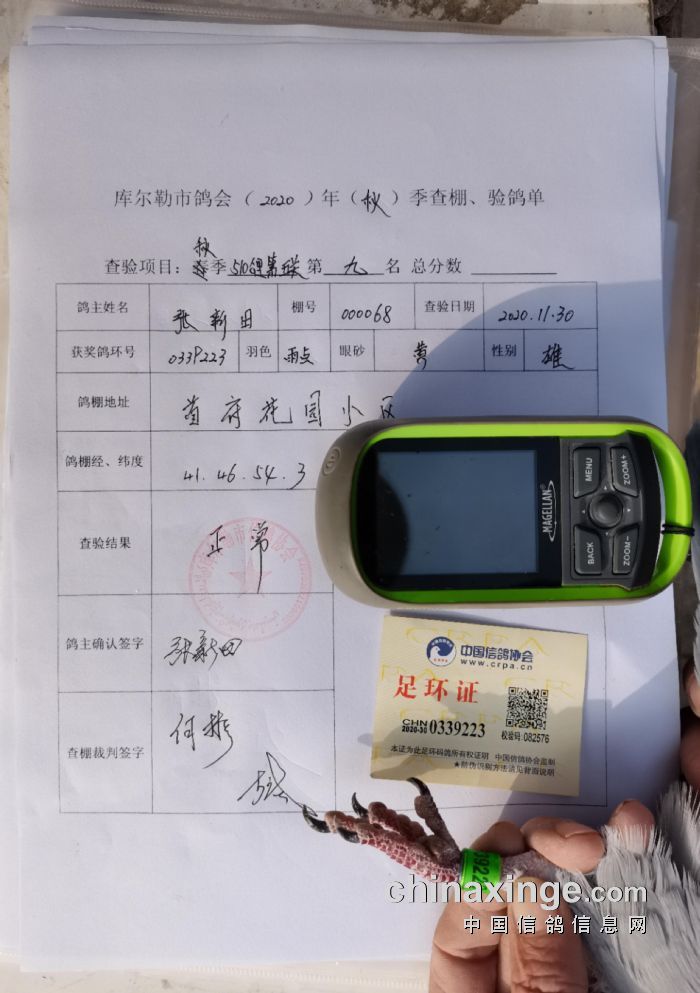 库尔勒市鸽会（2020）年（秋）季查棚、验鸽单
秋
查验项目：春季 510 第 九 名 总分数
鸽主姓名 张新田 棚号 000068 查验日期 2020.11.30
获奖鸽环号 0339223 羽色 雨点 眼砂 黄 性别 雄
鸽棚地址 首府花园小区
鸽棚经、纬度 41.46.54.3
查验结果 正常
鸽主确认签字 张新田
查棚裁判签字 何彬
MAGELLAN®
MENU
ZOOM+
BACK
ZOOM−
CRPA
中国信鸽协会
www.crpa.cn
足环证
CHN
2020-30 0339223
校验码:082576
本证为此足环码鸽所有权证明 中国信鸽协会监制
★防伪识别方法请见背面说明
3922
chinaxinge.com
中国信鸽信息网